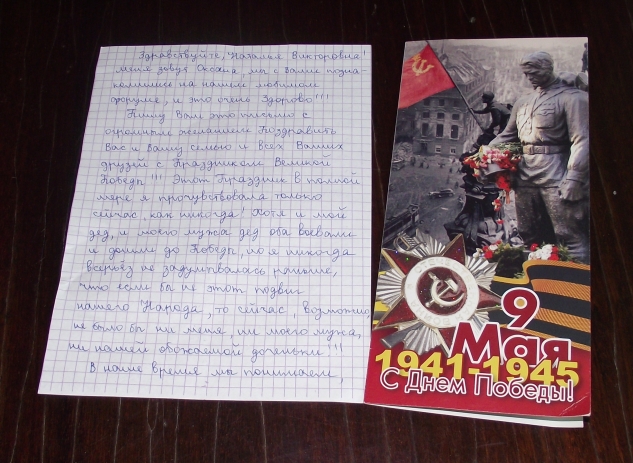 Здравствуйте, Наталья Викторовна!
Меня зовут Оксана, мы с Вами позна-
комились на нашем любимом
форуме, и это очень здорово!!!
Пишу Вам это письмо с
огромным желанием Поздравить
Вас и Вашу семью и всех Ваших
друзей с Праздником Великой
Победы!!! Этот Праздник в полной
мере я прочувствовала только
сейчас, как никогда! Хотя и мой
дед, и моего мужа дед оба воевали
и дошли до Победы, но я никогда
всерьёз не задумывалась раньше,
что если бы не этот подвиг
нашего Народа, то сейчас, возможно,
не было бы ни меня, ни моего мужа,
ни нашей обожаемой доченьки!!!
В наше время мы понимаем,
9
Мая
1941-1945
С Днем Победы!